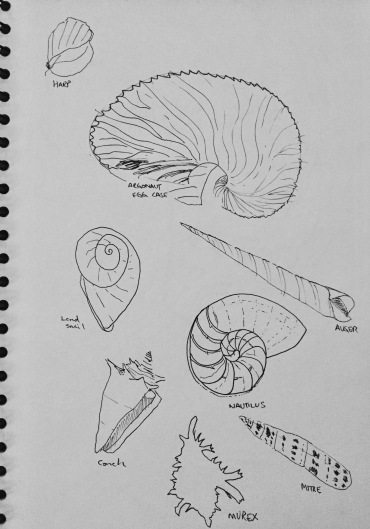 HARP
ARGONAUT
EGG CASE
Land
Snail
AUGER
NAUTILUS
Conch
MITRE
MUREX